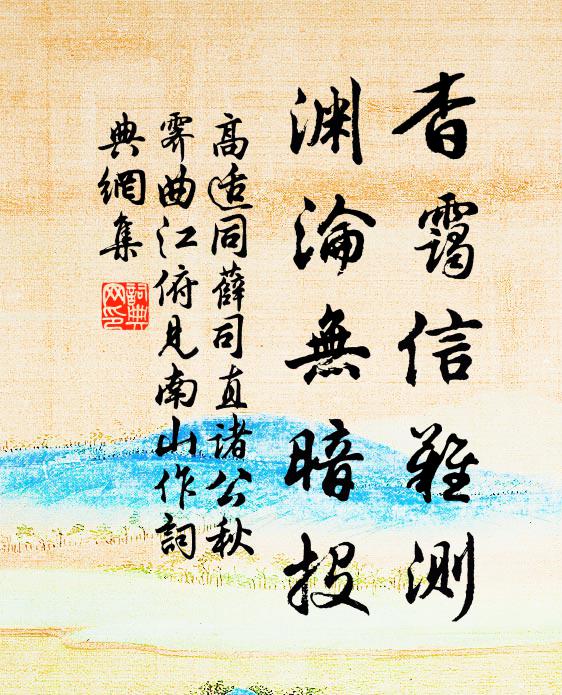 杳靄信難測
淵淪無暗投
高适同薛司直諸公秋
霽曲江俯見南山作詞
典網集
詞典
网印